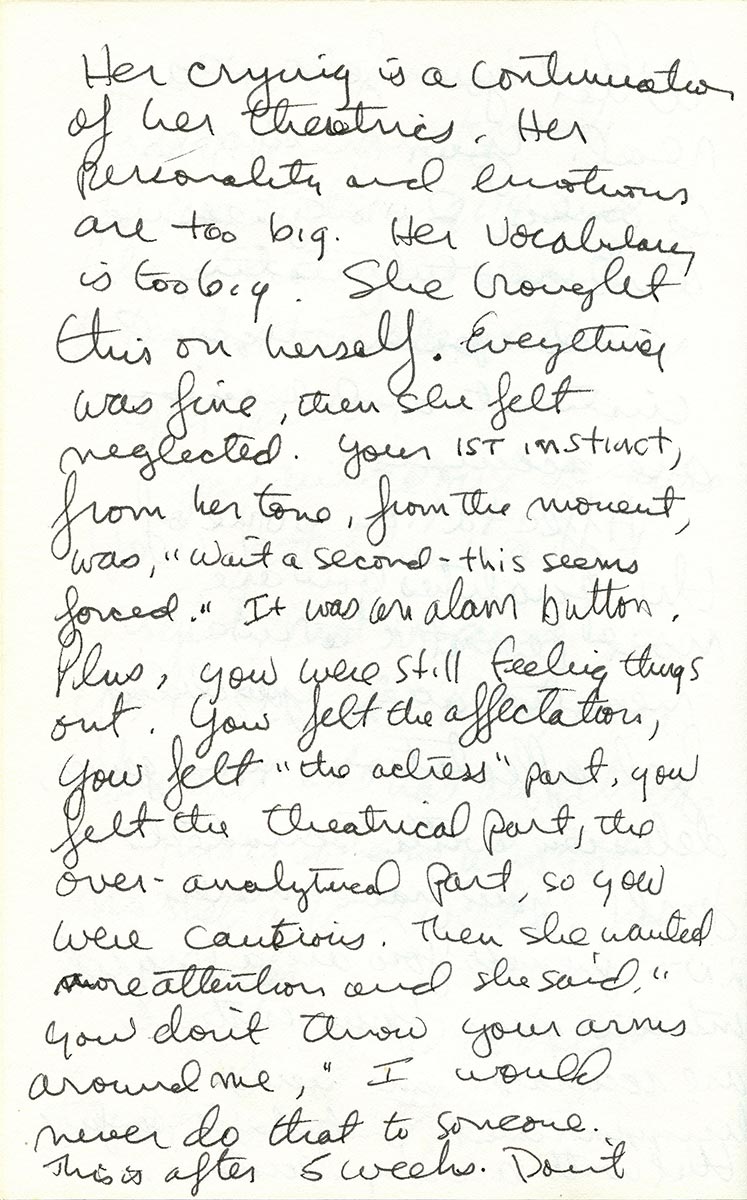 Her crying is a continuation
of her theatrics. Her
personality and emotions
are too big. Her vocabulary
is too big. She brought
this on herself. Everything
was fine, then she felt
neglected. Your 1ST instinct,
from her tone, from the moment,
was, "Wait a second - this seems
forced." It was an alarm button.
Plus, you were still feeling things
out. You felt the affectation,
you felt "the actress" part, you
felt the theatrical part, the
over-analytical part, so you
were cautious. Then she wanted
more attention and she said, "
you don't throw your arms
around me," I would
never do that to someone.
This is after 5 weeks. Don't